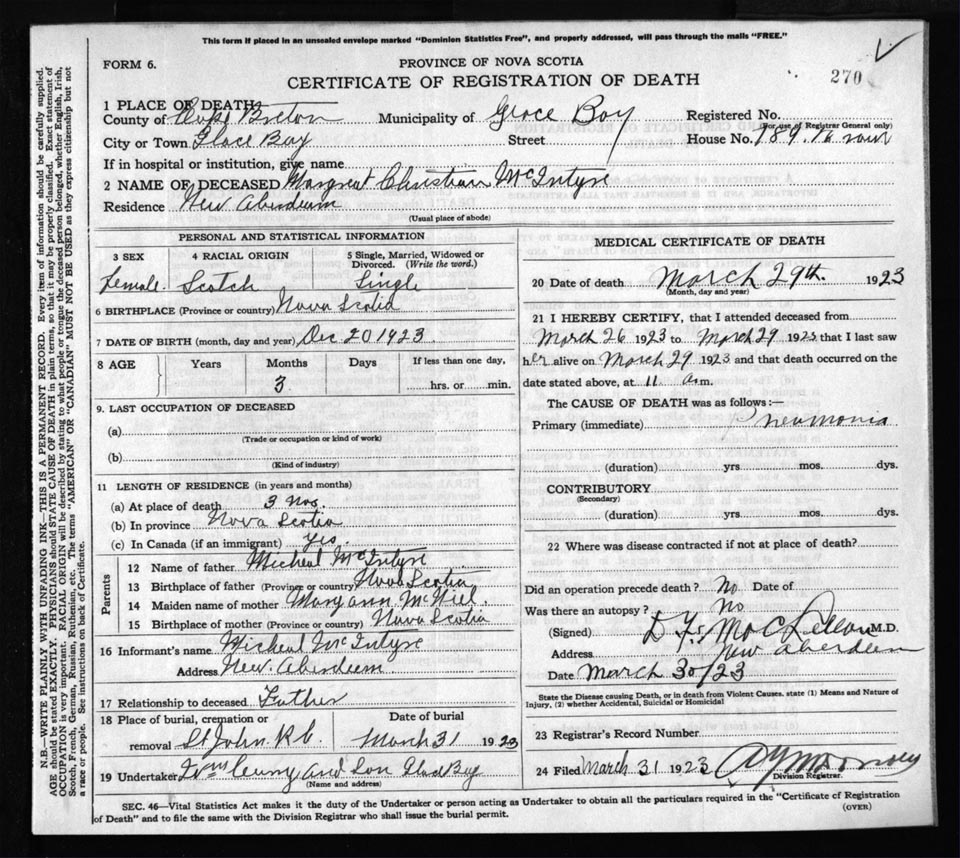 This form if placed in an unsealed envelope marked "Dominion Statistics Free", and properly addressed, will pass through the mails "FREE."
FORM 6.
PROVINCE OF NOVA SCOTIA
270
CERTIFICATE OF REGISTRATION OF DEATH
1 PLACE OF DEATH
County of Cape Breton Municipality of Grace Bay Registered No.
(For use of Registrar General only)
City or Town Glace Bay Street House No. 189.
If in hospital or institution, give name
2 NAME OF DECEASED Margreat Christian McIntyre
Residence New Aberdeem
(Usual place of abode)
PERSONAL AND STATISTICAL INFORMATION
3 SEX 4 RACIAL ORIGIN 5 Single, Married, Widowed or Divorced. (Write the word.)
Female. Scotch Single
6 BIRTHPLACE (Province or country) Nova Scotia
7 DATE OF BIRTH (month, day and year) Dec 20 1923
8 AGE Years Months Days If less than one day,
3 hrs. or min.
9. LAST OCCUPATION OF DECEASED
(a)
(Trade or occupation or kind of work)
(b)
(Kind of industry)
11 LENGTH OF RESIDENCE (in years and months)
(a) At place of death 3 Mos
(b) In province Nova Scotia
(c) In Canada (if an immigrant) yes
Parents
12 Name of father Micheal McIntyre
13 Birthplace of father (Province or country) Nova Scotia
14 Maiden name of mother Mary ann McNiel.
15 Birthplace of mother (Province or country) Nova Scotia
16 Informant's name Micheal McIntyre
Address New. Aberdeem
17 Relationship to deceased Father
18 Place of burial, cremation or removal St John R C. Date of burial March 31 1923
19 Undertaker and Son Glace Bay
(Name and address)
MEDICAL CERTIFICATE OF DEATH
20 Date of death March 29th 1923
(Month, day and year)
21 I HEREBY CERTIFY, that I attended deceased from
March 26 1923 to March 29 1923 that I last saw
her alive on March 29 1923 and that death occurred on the
date stated above, at 11 a.m.
The CAUSE OF DEATH was as follows:—
Primary (immediate) Pneumonia
(duration) yrs mos. dys.
CONTRIBUTORY
(Secondary)
(duration) yrs. mos. dys.
22 Where was disease contracted if not at place of death?
Did an operation precede death? No Date of
Was there an autopsy? No
(Signed) MacLellan M.D.
Address New Aberdeen
Date March 30/23
State the Disease causing Death, or in death from Violent Causes, state (1) Means and Nature of Injury, (2) whether Accidental, Suicidal or Homicidal
23 Registrar's Record Number
24 Filed March 31 1923
Division Registrar.
SEC. 46—Vital Statistics Act makes it the duty of the Undertaker or person acting as Undertaker to obtain all the particulars required in the "Certificate of Registration
of Death" and to file the same with the Division Registrar who shall issue the burial permit.
(OVER)
N.B.—WRITE PLAINLY WITH UNFADING INK—THIS IS A PERMANENT RECORD. Every item of information should be carefully supplied.
AGE should be stated EXACTLY. PHYSICIANS should STATE CAUSE OF DEATH in plain terms, so that it may be properly classified. Exact statement of
OCCUPATION is very important. RACIAL ORIGIN will be described by stating to what people or tongue the deceased person belonged, whether English, Irish,
Scotch, French, German, Russian, Ruthenian, etc. The terms "AMERICAN" OR "CANADIAN" MUST NOT BE USED as they express citizenship but not
a race or people. See instructions on back of Certificate.